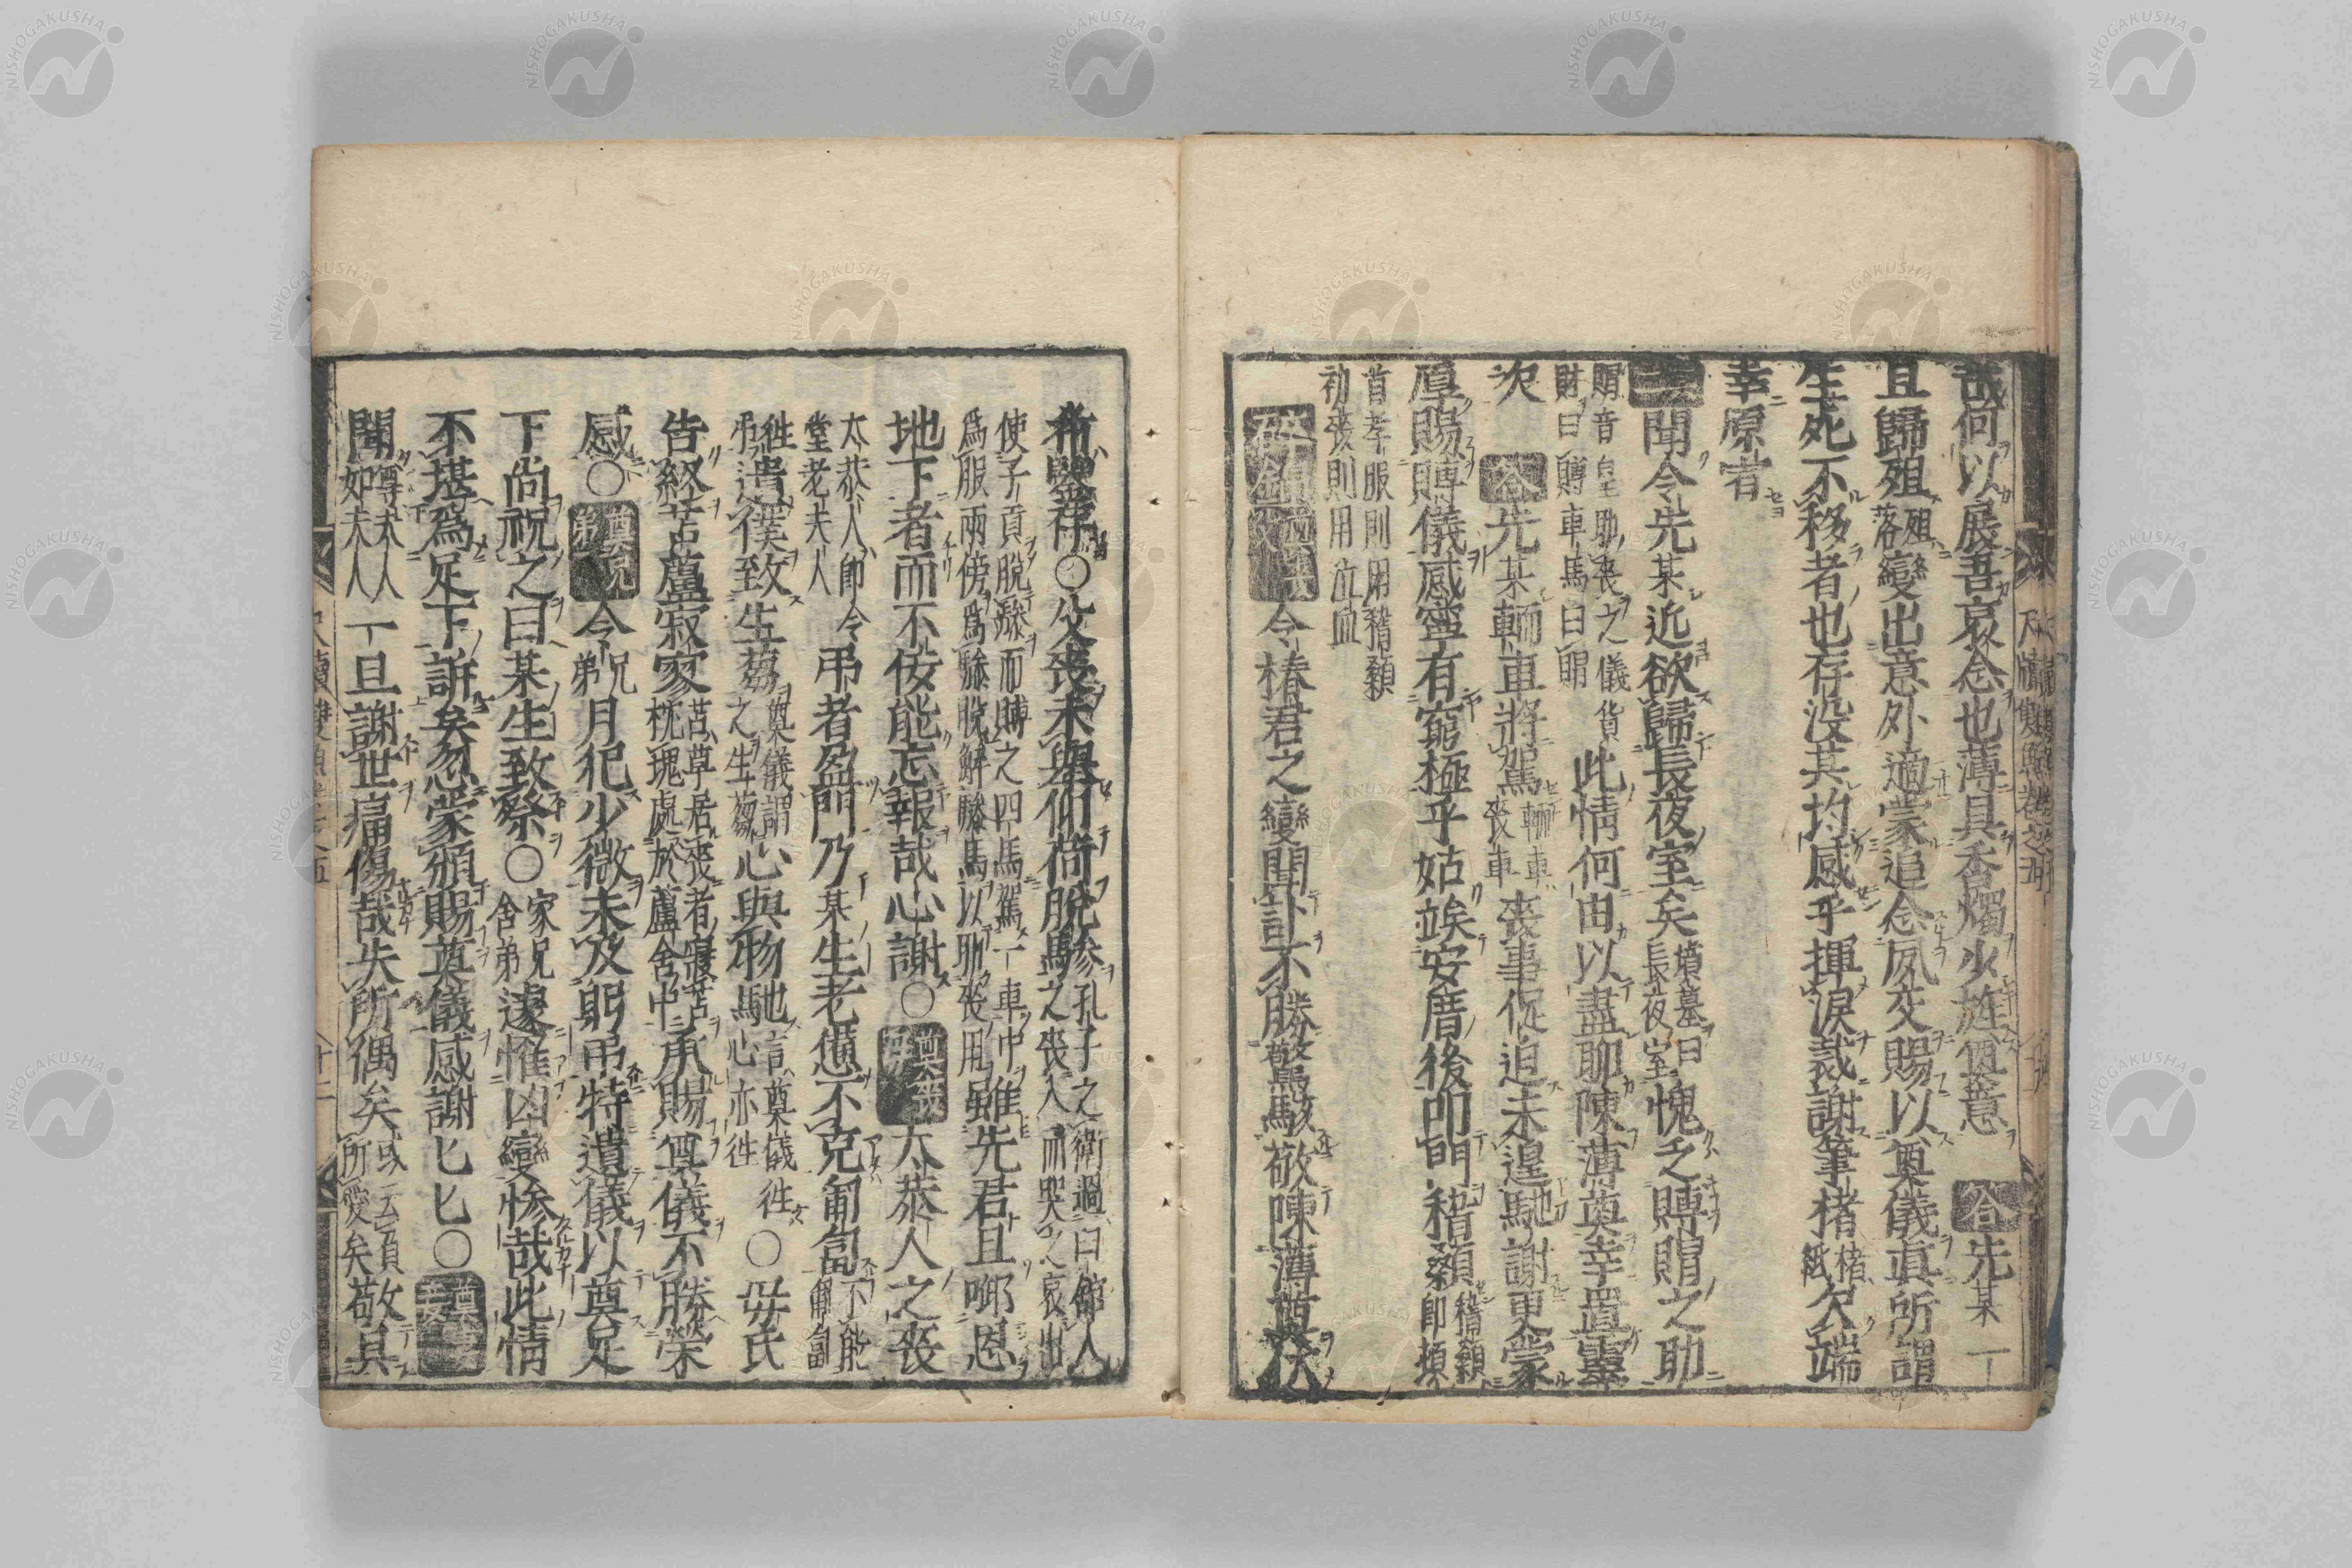 哉何以展吾哀念也薄具香燭少旌寸意 答先某一
旦歸殂 殂落 變出意外適蒙追念夙交賜以奠儀真所謂
生死不移者也存没其均感乎揮淚裁謝筆楮 楮紙 欠端
幸原者
聞令先某近欲歸長夜室矣 墳墓曰長夜室 愧乏賻賵之助
賵音 助喪之儀貨財曰賻車馬曰賵 此情何由以盡聊陳薄奠幸置靈
次 答先某輀車將駕 輀車喪車 喪事促迫未遑馳謝更蒙
厚賜賻儀感寧有窮極乎姑竢安厝後叩門稽顙 稽顙即頓
首孝服則用稽顙初喪則用泣血
令椿君之變聞訃不勝驚駭敬陳薄奠伏
希鑒祥○父喪未舉仰荷脫驂 孔子之衛遇曰館人之喪入而哭之哀出
使子貢脫驂而賻之四馬駕一車中為服兩傍為驂脫解驂馬以助喪用 雖先君且啣恩
地下者而不佞能忘報哉心謝○ 奠母喪 太恭人之喪
太恭人即令堂老夫人 弔者盈門乃某生老憊不克匍匐 不能匍匐
徃弔遣僕致生芻 奠儀謂之生芻 心與物馳 言奠儀徃心亦徃 ○毋氏
告終苫蘆寂寥 苫草居喪者寢苫枕塊處於蘆舍中 承賜尊儀不勝榮
感○ 奠兄弟 令 兄弟 月犯少微未及躬弔特遣儀以奠足
下尚祝之曰某生致祭○ 家兄舍弟 遽惟凶變慘哉此情
不堪為足下訴矣忽蒙頒賜奠儀感謝匕匕○
聞 尊夫人如夫人 一旦謝世痛傷哉失所偶矣 或云頁所愛矣 敬具